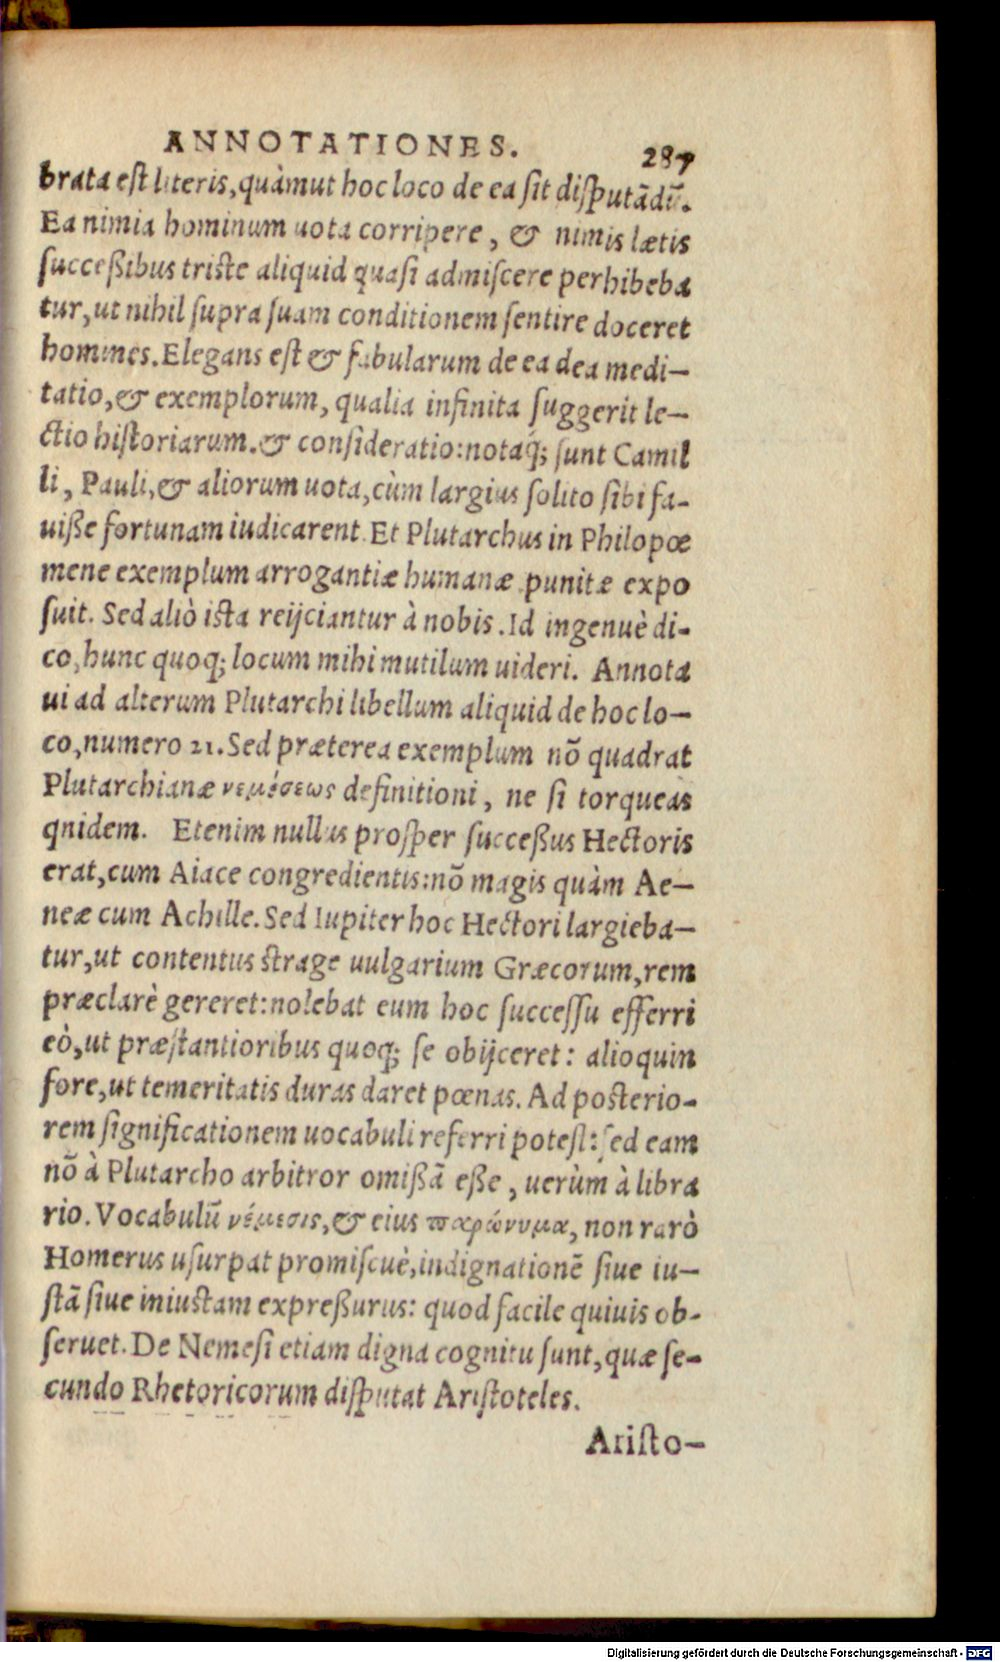 ANNOTATIONES. 287
brata est literis, quàmut hoc loco de ea sit disputãdũ.
Ea nimia hominum uota corripere, & nimis lætis
succeßibus triste aliquid quasi admiscere perhibeba
tur, ut nihil supra suam conditionem sentire doceret
homines. Elegans est & fabularum de ea dea medi–
tatio, & exemplorum, qualia infinita suggerit le–
ctio historiarum. & consideratio: notaq́; sunt Camil
li, Pauli, & aliorum uota, cùm largius solito sibi fa-
uiße fortunam iudicarent. Et Plutarchus in Philopœ
mene exemplum arrogantiæ humanæ punitæ expo
suit. Sed aliò ista reijciantur à nobis. Id ingenuè di-
co, hunc quoq; locum mihi mutilum uideri. Annota
ui ad alterum Plutarchi libellum aliquid de hoc lo–
co, numero 21. Sed præterea exemplum nõ quadrat
Plutarchianæ νεμέσεως definitioni, ne si torqueas
qnidem. Etenim nullus prosper succeßus Hectoris
erat, cum Aiace congredientis: nõ magis quàm Ae–
neæ cum Achille. Sed Iupiter hoc Hectori largieba–
tur, ut contentus strage uulgarium Græcorum, rem
præclarè gereret: nolebat eum hoc successu efferri
eò, ut præstantioribus quoq; se obijceret: alioquin
fore, ut temeritatis duras daret pœnas. Ad posterio-
rem significationem uocabuli referri potest: sed eam
nõ à Plutarcho arbitror omißã eße, uerùm à libra
rio. Vocabulũ νέμεσις, & eius παρώνυμα, non rarò
Homerus usurpat promiscuè, indignationẽ siue iu–
stã siue iniustam expreßurus: quod facile quiuis ob-
seruet. De Nemesi etiam digna cognitu sunt, quæ se-
cundo Rhetoricorum disputat Aristoteles.
Aristo–
Digitalisierung gefördert durch die Deutsche Forschungsgemeinschaft - DFG